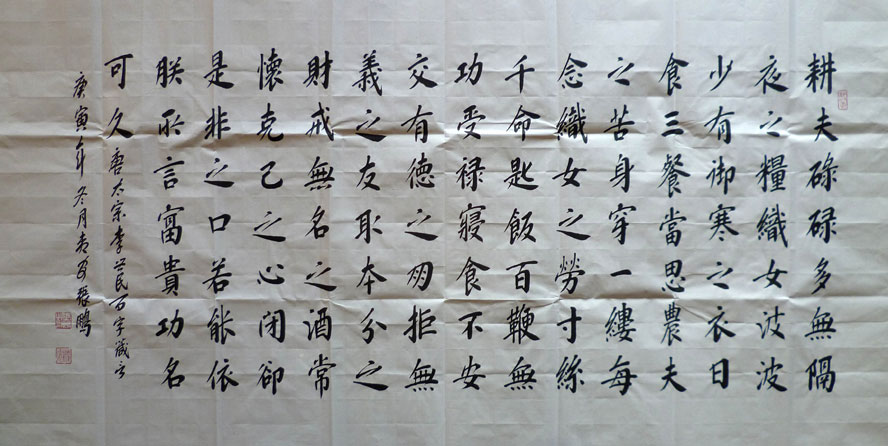 耕夫碌碌多無隔
夜之糧織女波波
少有御寒之衣日
食三餐當思農夫
之苦身穿一縷每
念織女之勞寸絲
千命匙飯百鞭無
功受禄寢食不安
交有德之朋拒無
義之友取本分之
財戒無名之酒常
懷克己之心闭卻
是非之口若能依
朕所言富貴功名
可久 唐太宗李世民百字箴言
庚寅年冬月張鵬